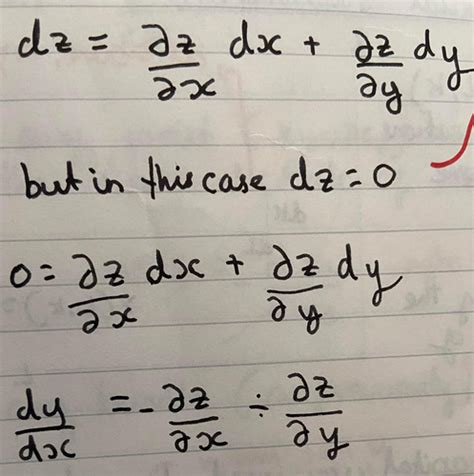 dz = ∂z/∂x dx + ∂z/∂y dy
but in this case dz = 0
0 = ∂z/∂x dx + ∂z/∂y dy
dy/dx = - ∂z/∂x ÷ ∂z/∂y